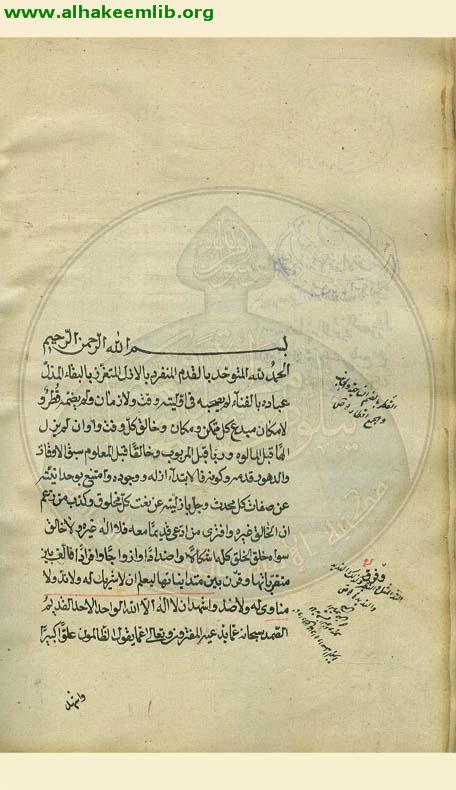 www.alhakeemlib.org
بسم الله الرحمن الرحيم
الحمد لله المتوحد بالقدم المنفرد بالازل المتعزز بالبقاء المذل
عباده بالفناء لم يصحبه في ازليته وقت ولا زمان ولم يضمه قطر و
لا مكان مبدع كل متمكن ومكان وخالق كل وقت واوان لم يزل
الها قبل المالوه وربا قبل المربوب وخالقا قبل المعلوم سبق الاوقات
والدهور قدمه وكونه فلا لابتداء ازله ووجوده وامتنع بوحدانيته
عن صفات كل محدث وجل بازليته عن نعت كل مخلوق وكذب من زعم
ان الخالق غيره وافترى من ادعى قديما معه فلا اله غيره ولا خالق
سواه خلق الخلق كله اشكالا واضدادا وازواجا وافرادا فالف بين
متفرقاتها وفرق بين متدانياتها ليعلم ان لا شريك له ولا ند ولا
مناوي له ولا ضد واشهد ان لا اله الا الله الواحد الاحد القديم
الصمد سبحانه عما يدعيه المفترون وتعالى عما يقول الظالمون علوا كبيرا
واشهد
القطر بالضم الناحية والجانب
وجمع اقطار
وفرق